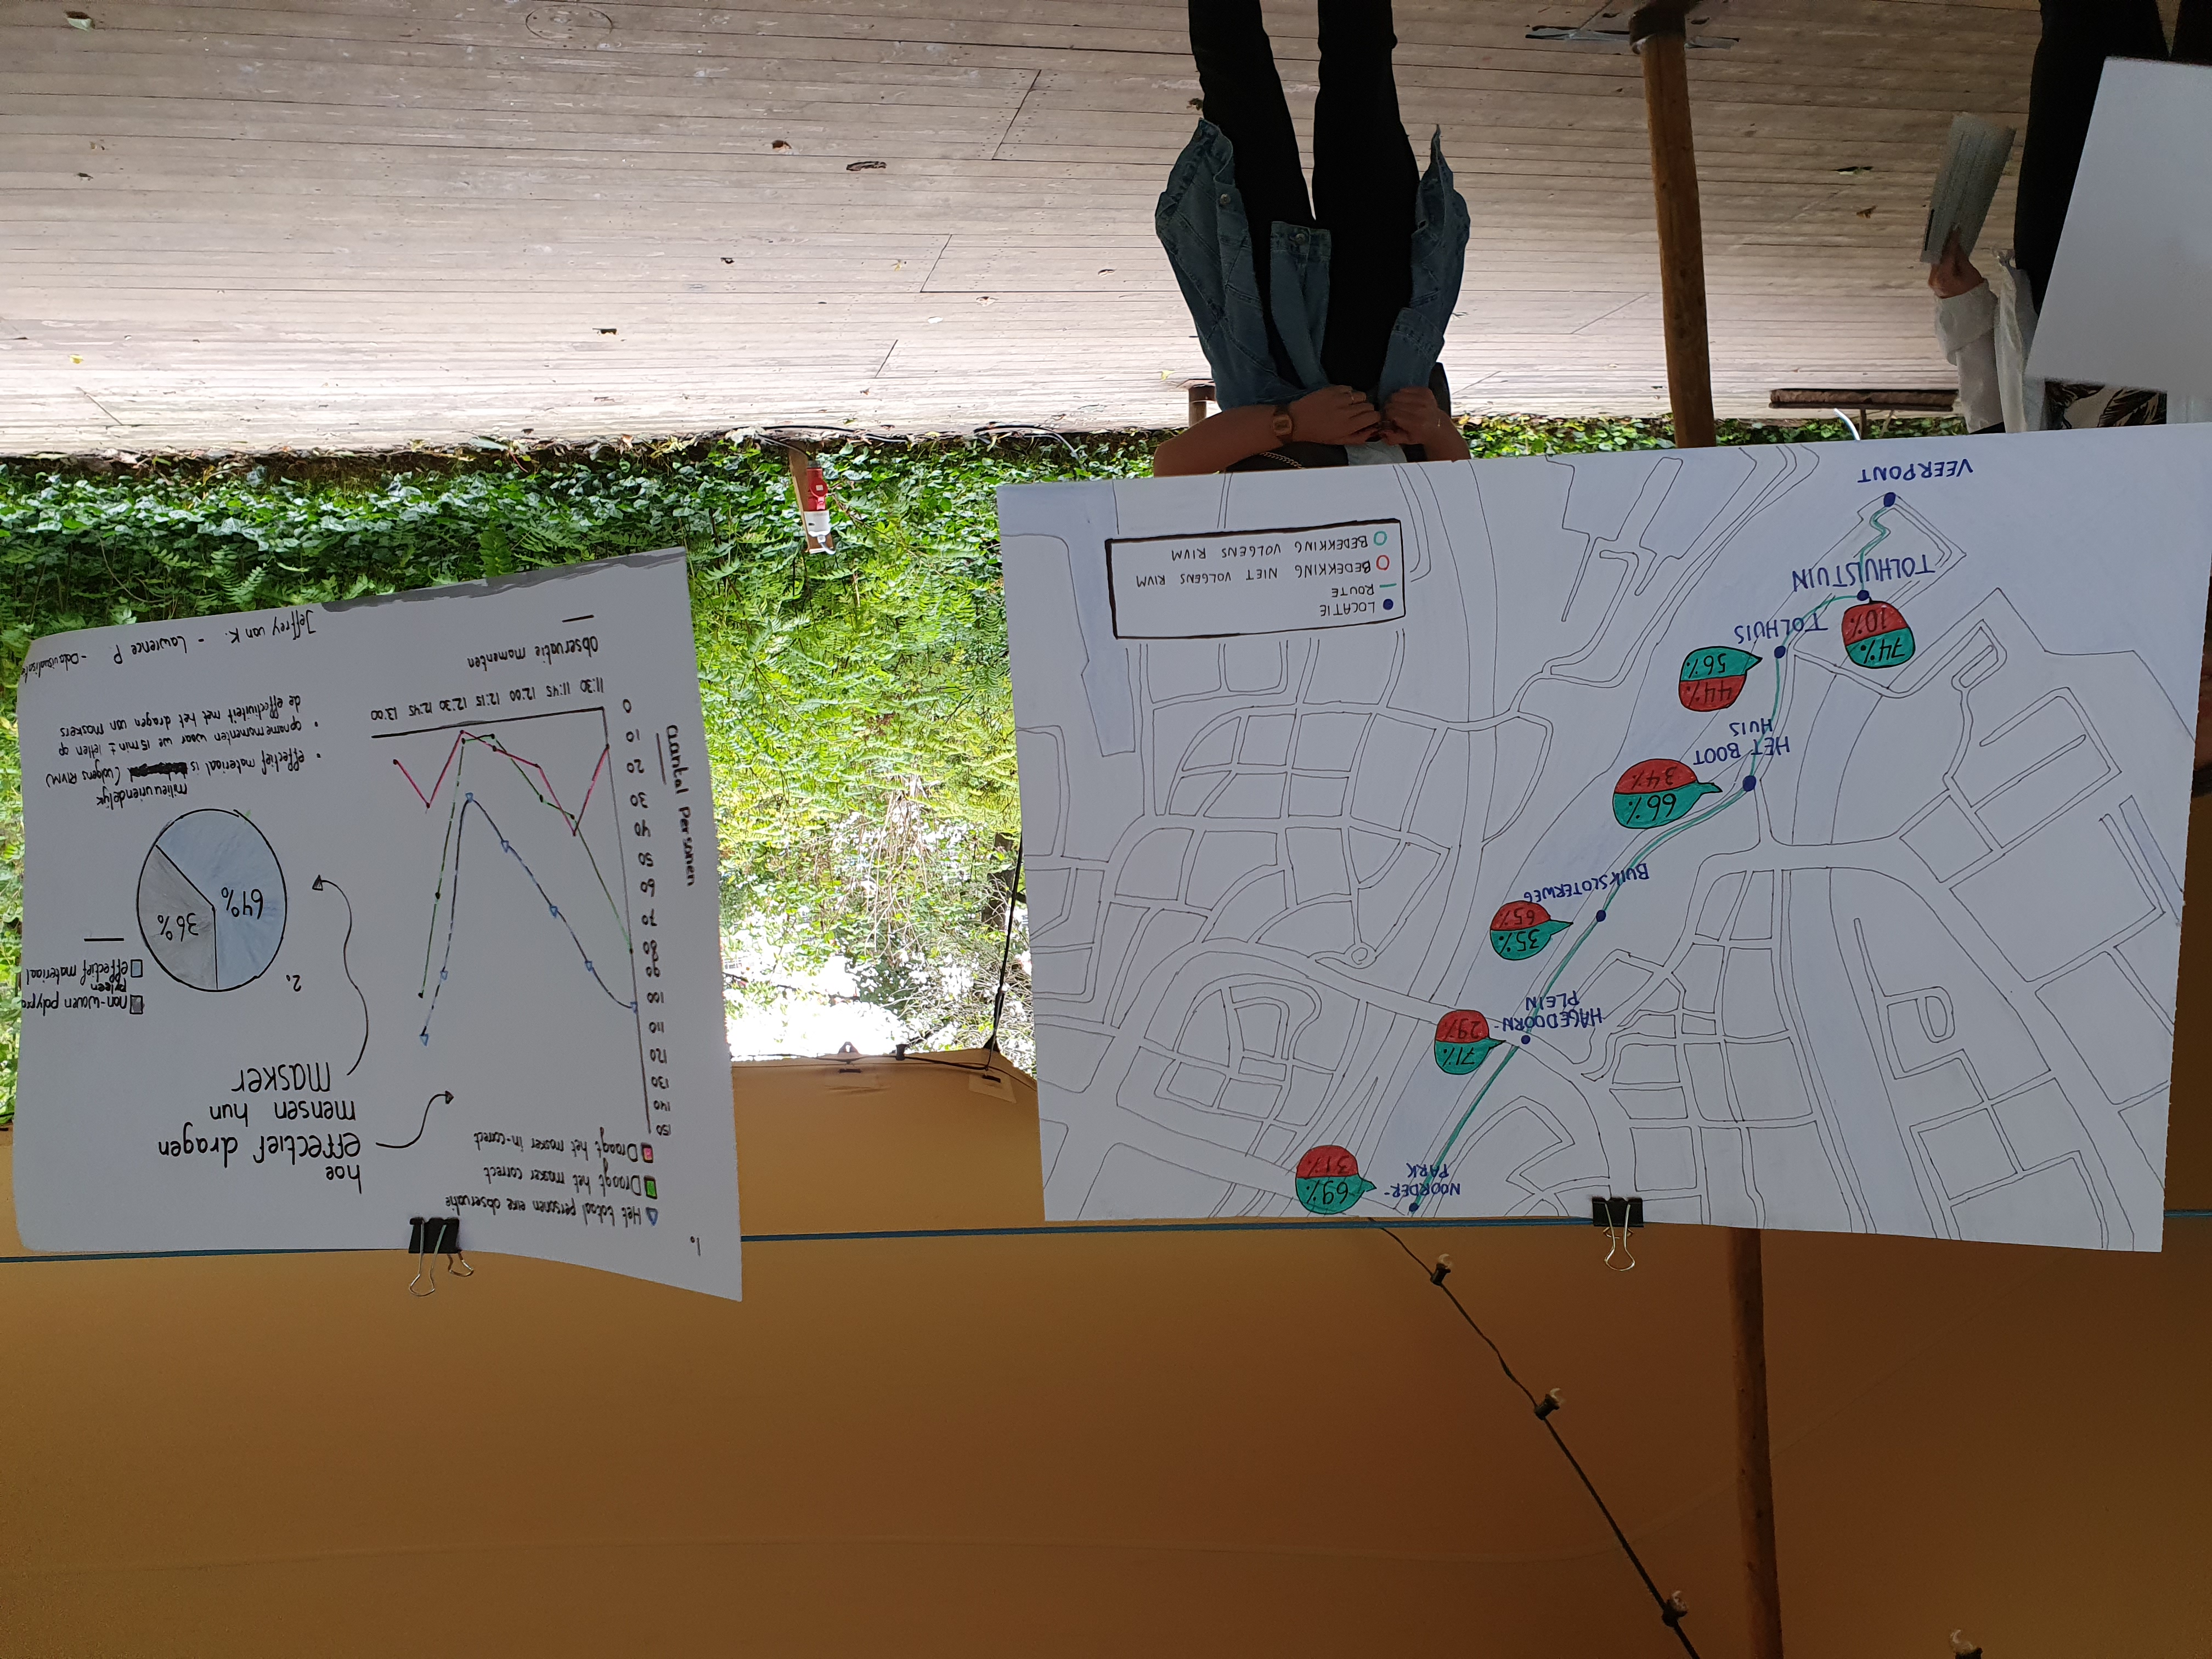 NOORDER-
PARK
69%
31%
71%
29%
HAGEDOORN-
PLEIN
35%
65%
BUIKSLOTERWEG
66%
34%
HET BOOT
HUIS
44%
56%
74%
10%
TOLHUIS
TOLHUISTUIN
VEERPONT
LOCATIE
ROUTE
BEDEKKING NIET VOLGENS RIVM
BEDEKKING VOLGENS RIVM
1.
Het totaal personen elke observatie
Draagt het masker correct
Draagt het masker in-correct
hoe
effectief dragen
mensen hun
masker
150
140
130
120
110
100
90
80
70
60
50
40
30
20
10
0
aantal Personen
11:30 11:45 12:00 12:15 12:30 12:45 13:00
Observatie momenten
2.
non-woven polypro
pyleen
effectief materiaal
64%
36%
milieuvriendelijk
• effectief materiaal is (volgens RIVM)
• opname momenten waar we 15 min ± letten op
de effectiviteit met het dragen van maskers
Jeffrey van K. - Lawrence P. - Datavisualisatie